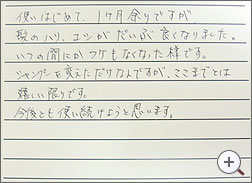 使いはじめて、1ヶ月余りですが
髪のハリ、コシがだいぶ良くなりました。
いつの間にかフケもなくなった様です。
シャンプーを変えただけなんですが、ここまでとは
嬉しい限りです。
今後とも使い続けようと思います。